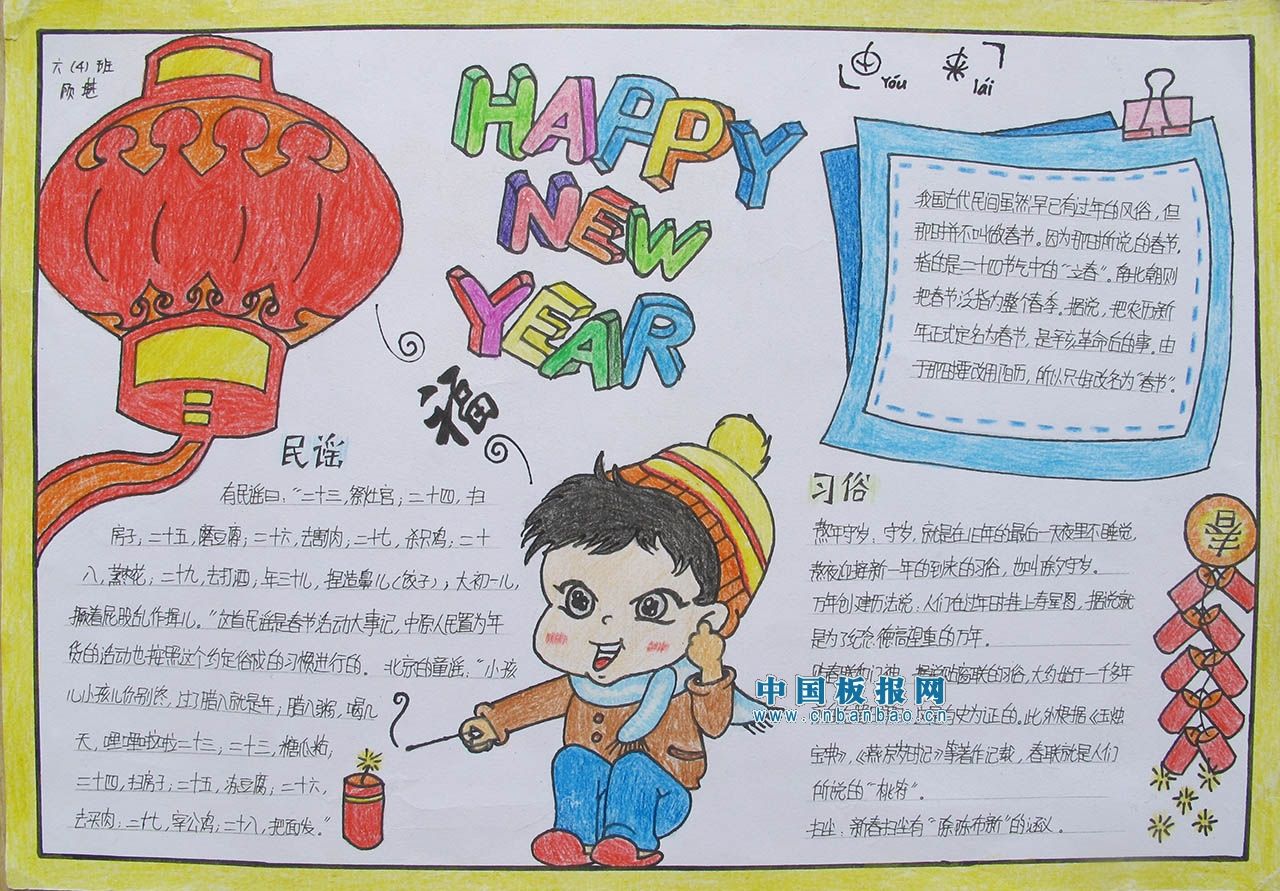 六(4)班
顾魁
HAPPY
NEW
YEAR
由 来
Yóu lái
我国古代民间虽然早已有过年的风俗，但
那时并不叫做春节。因为那时所说的春节，
指的是二十四节气中的“立春”。南北朝则
把春节泛指为整个春季。据说，把农历新
年正式定名为春节，是辛亥革命后的事。由
于那时要改用阳历，所以只好改名为“春节”。
福
民谣
有民谣曰：“二十三，祭灶官；二十四，扫
房子；二十五，磨豆腐；二十六，去割肉；二十七，杀只鸡；二十
八，蒸枣花；二十九，去打酒；年三十儿，捏造鼻儿（饺子）；大初一儿，
撅着屁股乱作揖儿。”这首民谣是春节活动大事记，中原人民置为年
货的活动也按照这个约定俗成的习惯进行的。北京的童谣：“小孩
儿小孩儿你别馋，过了腊八就是年；腊八粥，喝几
天，哩哩啦啦二十三；二十三，糖瓜粘；
二十四，扫房子；二十五，冻豆腐；二十六，
去买肉；二十七，宰公鸡；二十八，把面发。”
习俗
熬年守岁：守岁，就是在旧年的最后一天夜里不睡觉，
熬夜迎接新一年的到来的习俗，也叫除夕守岁。
万年创建历法说：人们在过年时挂上寿星图，据说就
是为了纪念德高望重的万年。
贴春联和门神：据说贴春联的习俗，大约始于一千多年
史为证的。此外根据《玉烛
宝典》，《燕京岁时记》等著作记载，春联就是人们
所说的“桃符”。
扫尘：新春扫尘有“除陈布新”的涵义。
春
中国板报网
www.cnbanbao.cn